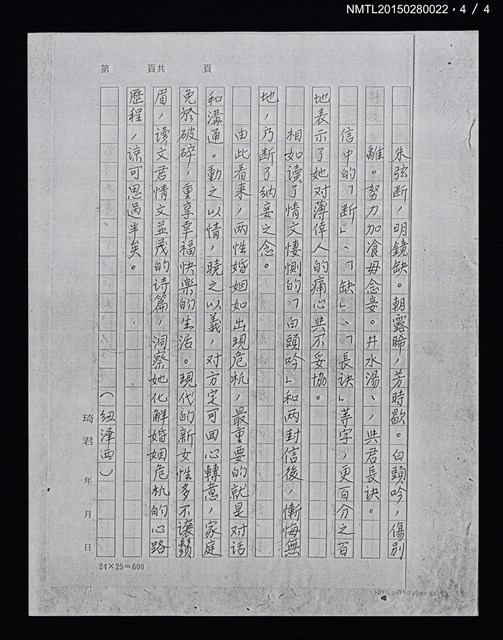 NMTL20150280022，4 / 4
第　頁共　頁
朱弦断，明鏡缺。朝露晞，芳時歇。白頭吟，傷别
離。努力加飡毋念妾。井水湯、，與君長诀。
信中的「断」、「缺」、「長诀」等字，更百分之百
地表示了她对薄倖人的痛心與不妥協。
相如读了情文悽惻的「白頭吟」和两封信後，慚悔無
地，乃断了纳妾之念。
由此看来，两性婚姻如出现危机，最重要的就是对话
和溝通。動之以情，曉之以義，对方定可回心轉意，家庭
免於破碎，重享幸福快樂的生活。现代的新女性多不讓鬚
眉，读文君情文並茂的诗篇，洞察她化解婚姻危机的心路
歷程，谅可思過半矣。
（纽泽西）
琦君　年　月　日
24×25=600